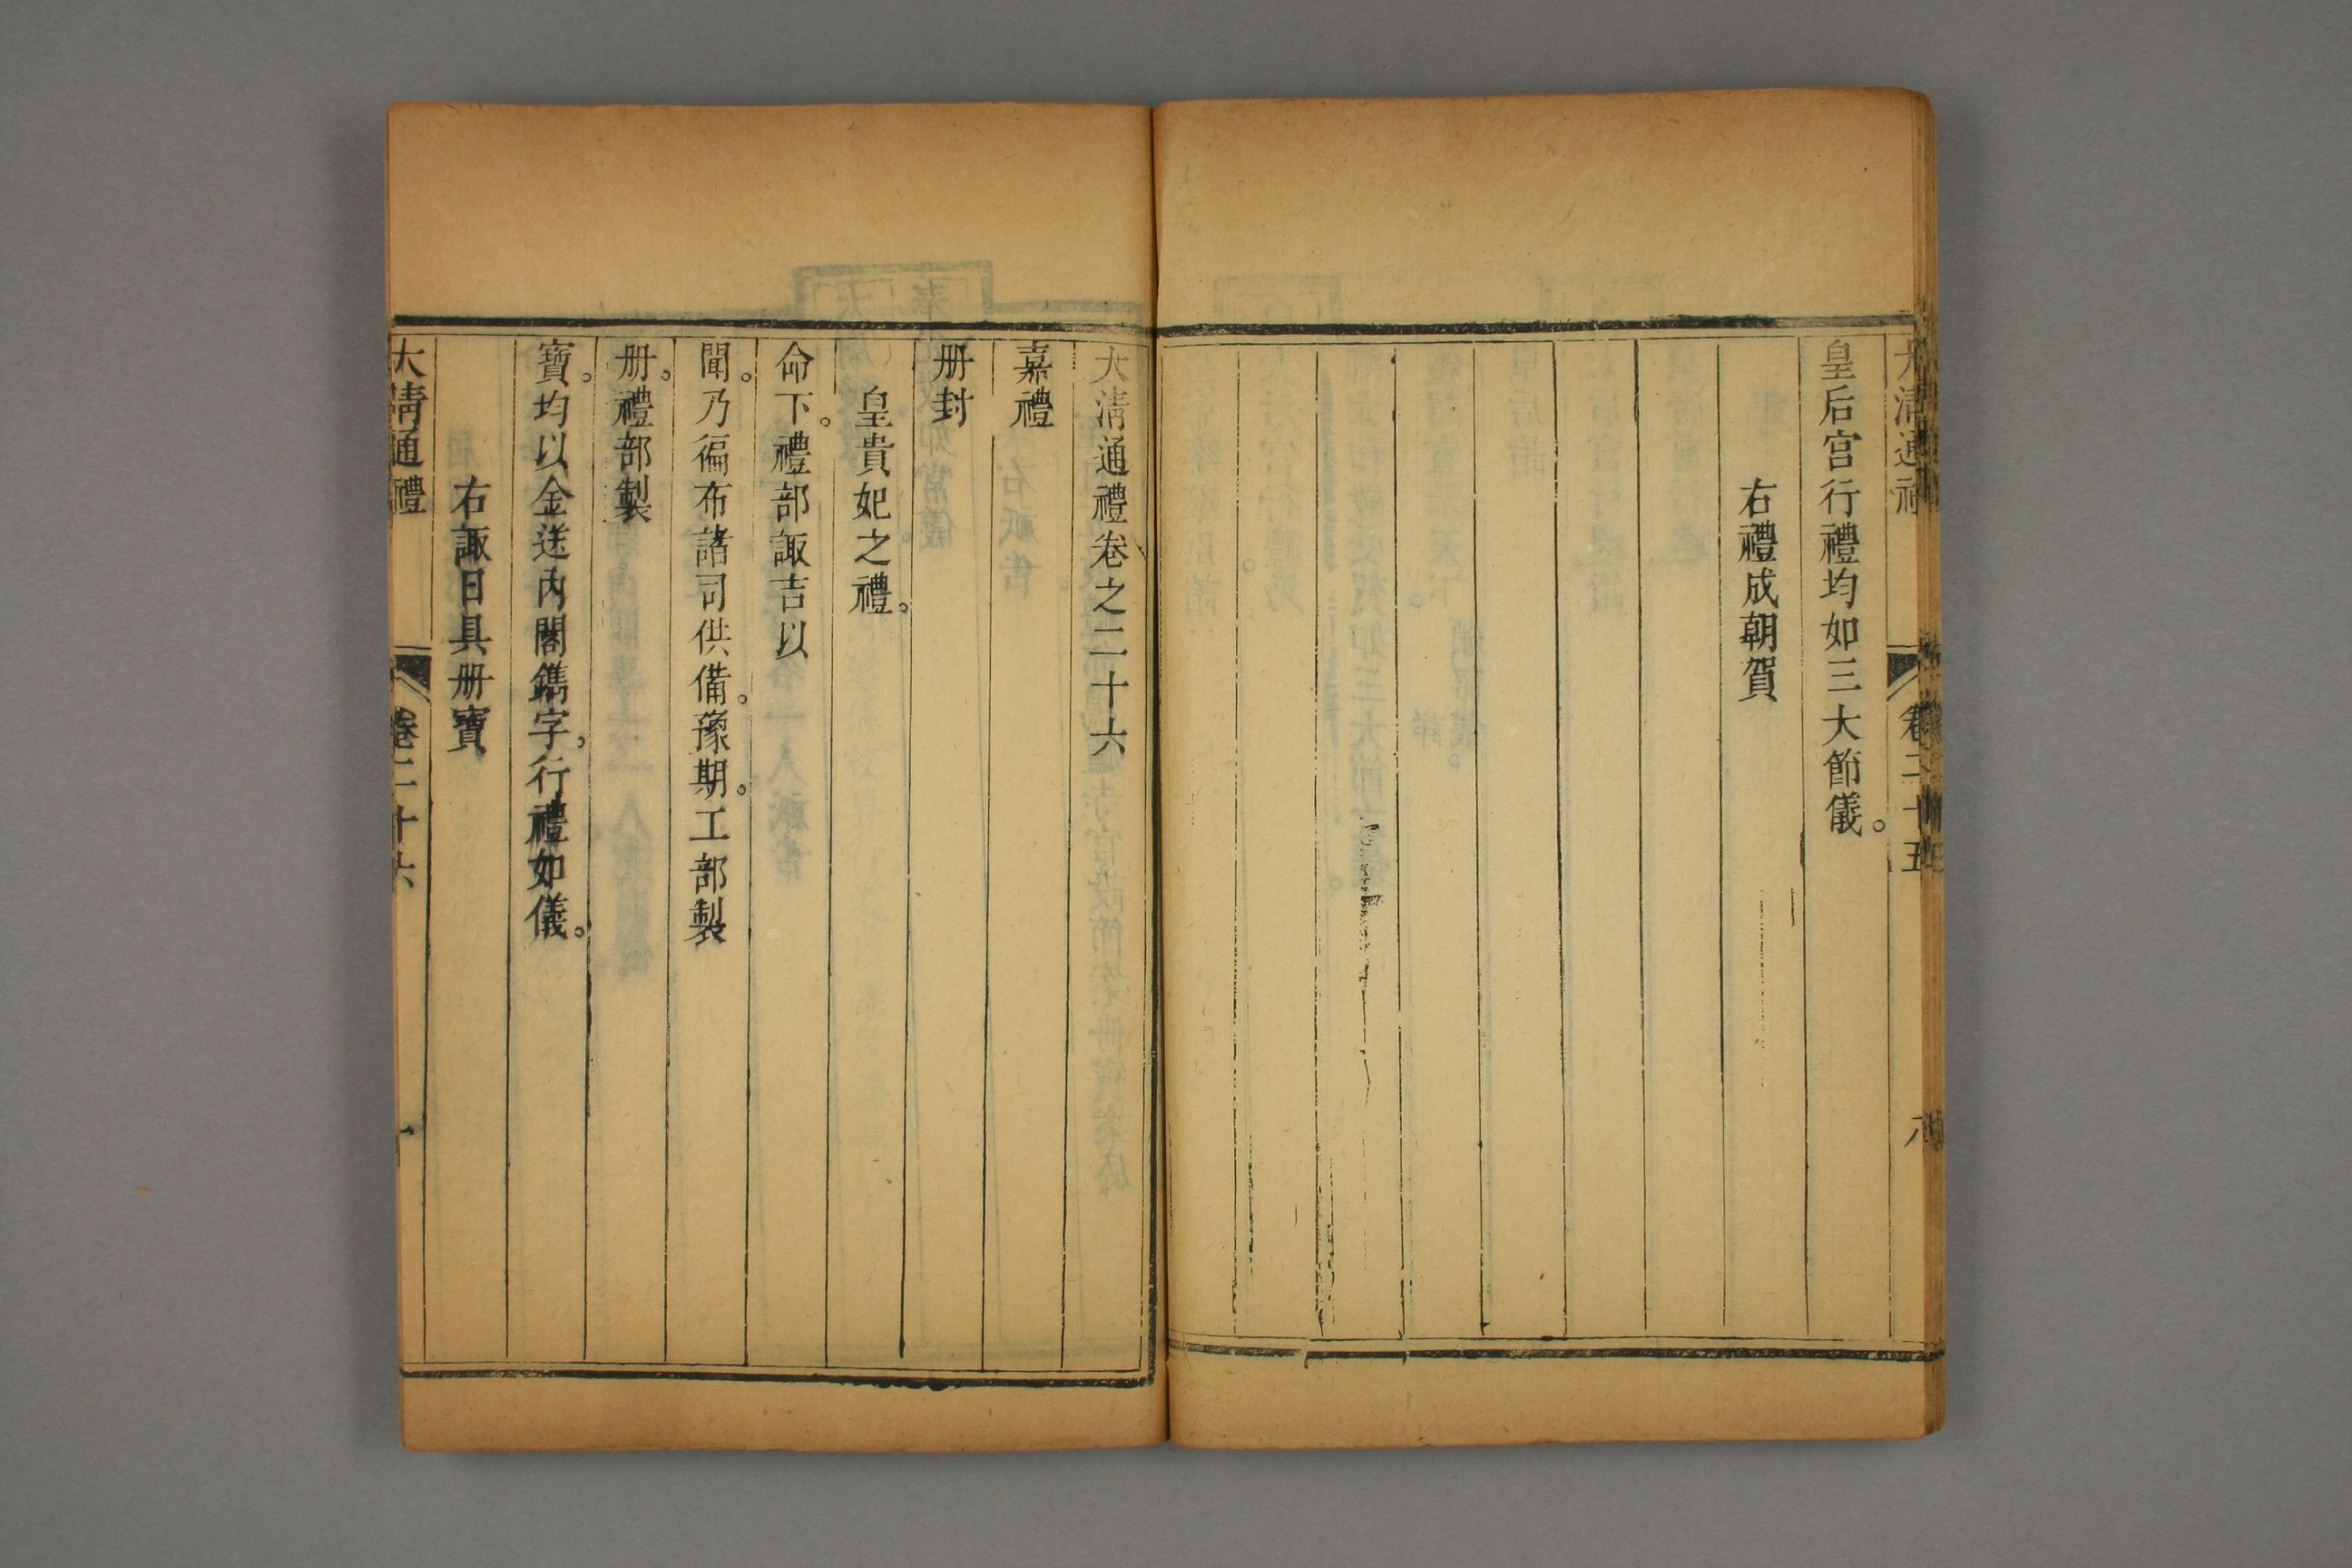 大清通禮
卷二十五
皇后宮行禮均如三大節儀。
右禮成朝賀
大清通禮卷之二十六
嘉禮
册封
皇貴妃之禮。
命下。禮部諏吉以
聞。乃徧布諸司供備。豫期。工部製
册。禮部製
寶。均以金送内閣鐫字。行禮如儀。
右諏日具册寶
大清通禮
卷二十六
一